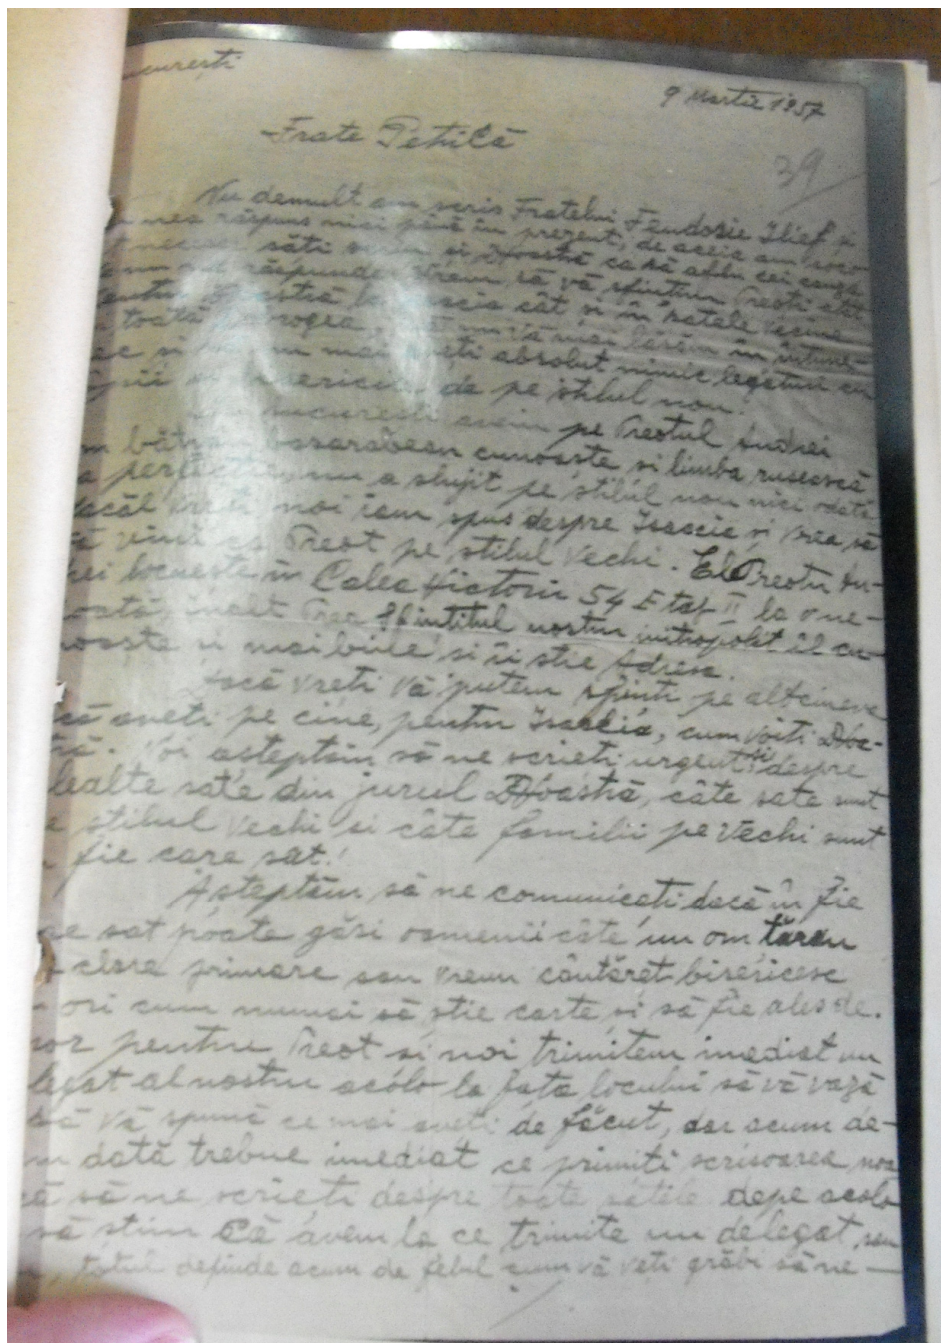 București
9 Martie 1957
Frate Petrică
39
Nu demult am scris Fratelui Feodosie Ilief și
răspuns nici până în prezent, de aceia am
să vă scriu și Dvoastră ca să aflu cei cauza
răspunde. Vream să vă sfințim Preoți atât
pentru Dvoastră la Isaccea cât și în satele vecine
toată Dobrogea, să nu vă mai lăsăm în întune-
și să nu mai aveți absolut nimic legături cu
de pe stilul nou.
București avem pe Preotul Andrei
bătrân basarabean cunoaște și limba rusească
la perfecție, nu a slujit pe stilul nou nici odată
dacăl vreți noi iam spus despre Isaccia și vrea să
vină ca Preot pe stilul vechi. El Preotu An-
drei locuește în Calea Victoriei 54 Etaj II la o ne-
poată, Înalt Prea Sfințitul nostru mitropolit îl cu-
noaște și mai bine și îi știe Adresa.
Dacă vreți vă putem sfinți pe altcineva
că aveți pe cine, pentru Isaccia, cum voiți Dvoa-
tră. Noi așteptăm să ne scrieți urgent și despre
lealte sate din jurul Dvoastră, câte sate sunt
e stilul vechi și câte familii pe vechi sunt
fie care sat.
Așteptăm să ne comunicați dacă în fie
are sat poate găsi oamenii câte un om țăran
clase primare sau vreun cântăreț bisericesc
ori cum numai să știe carte și să fie ales de.
sor pentru Preot și noi trimitem imediat un
legat al nostru acolo la fața locului să vă vază
să vă spună ce mai aveți de făcut, dar acum de-
dată trebue imediat ce primiți scrisoarea noa
să ne scrieți despre toate satele depe acolo
să știm Că avem la ce trimite un delegat, sau
totul depinde acum de felul cum vă veți grăbi să ne —